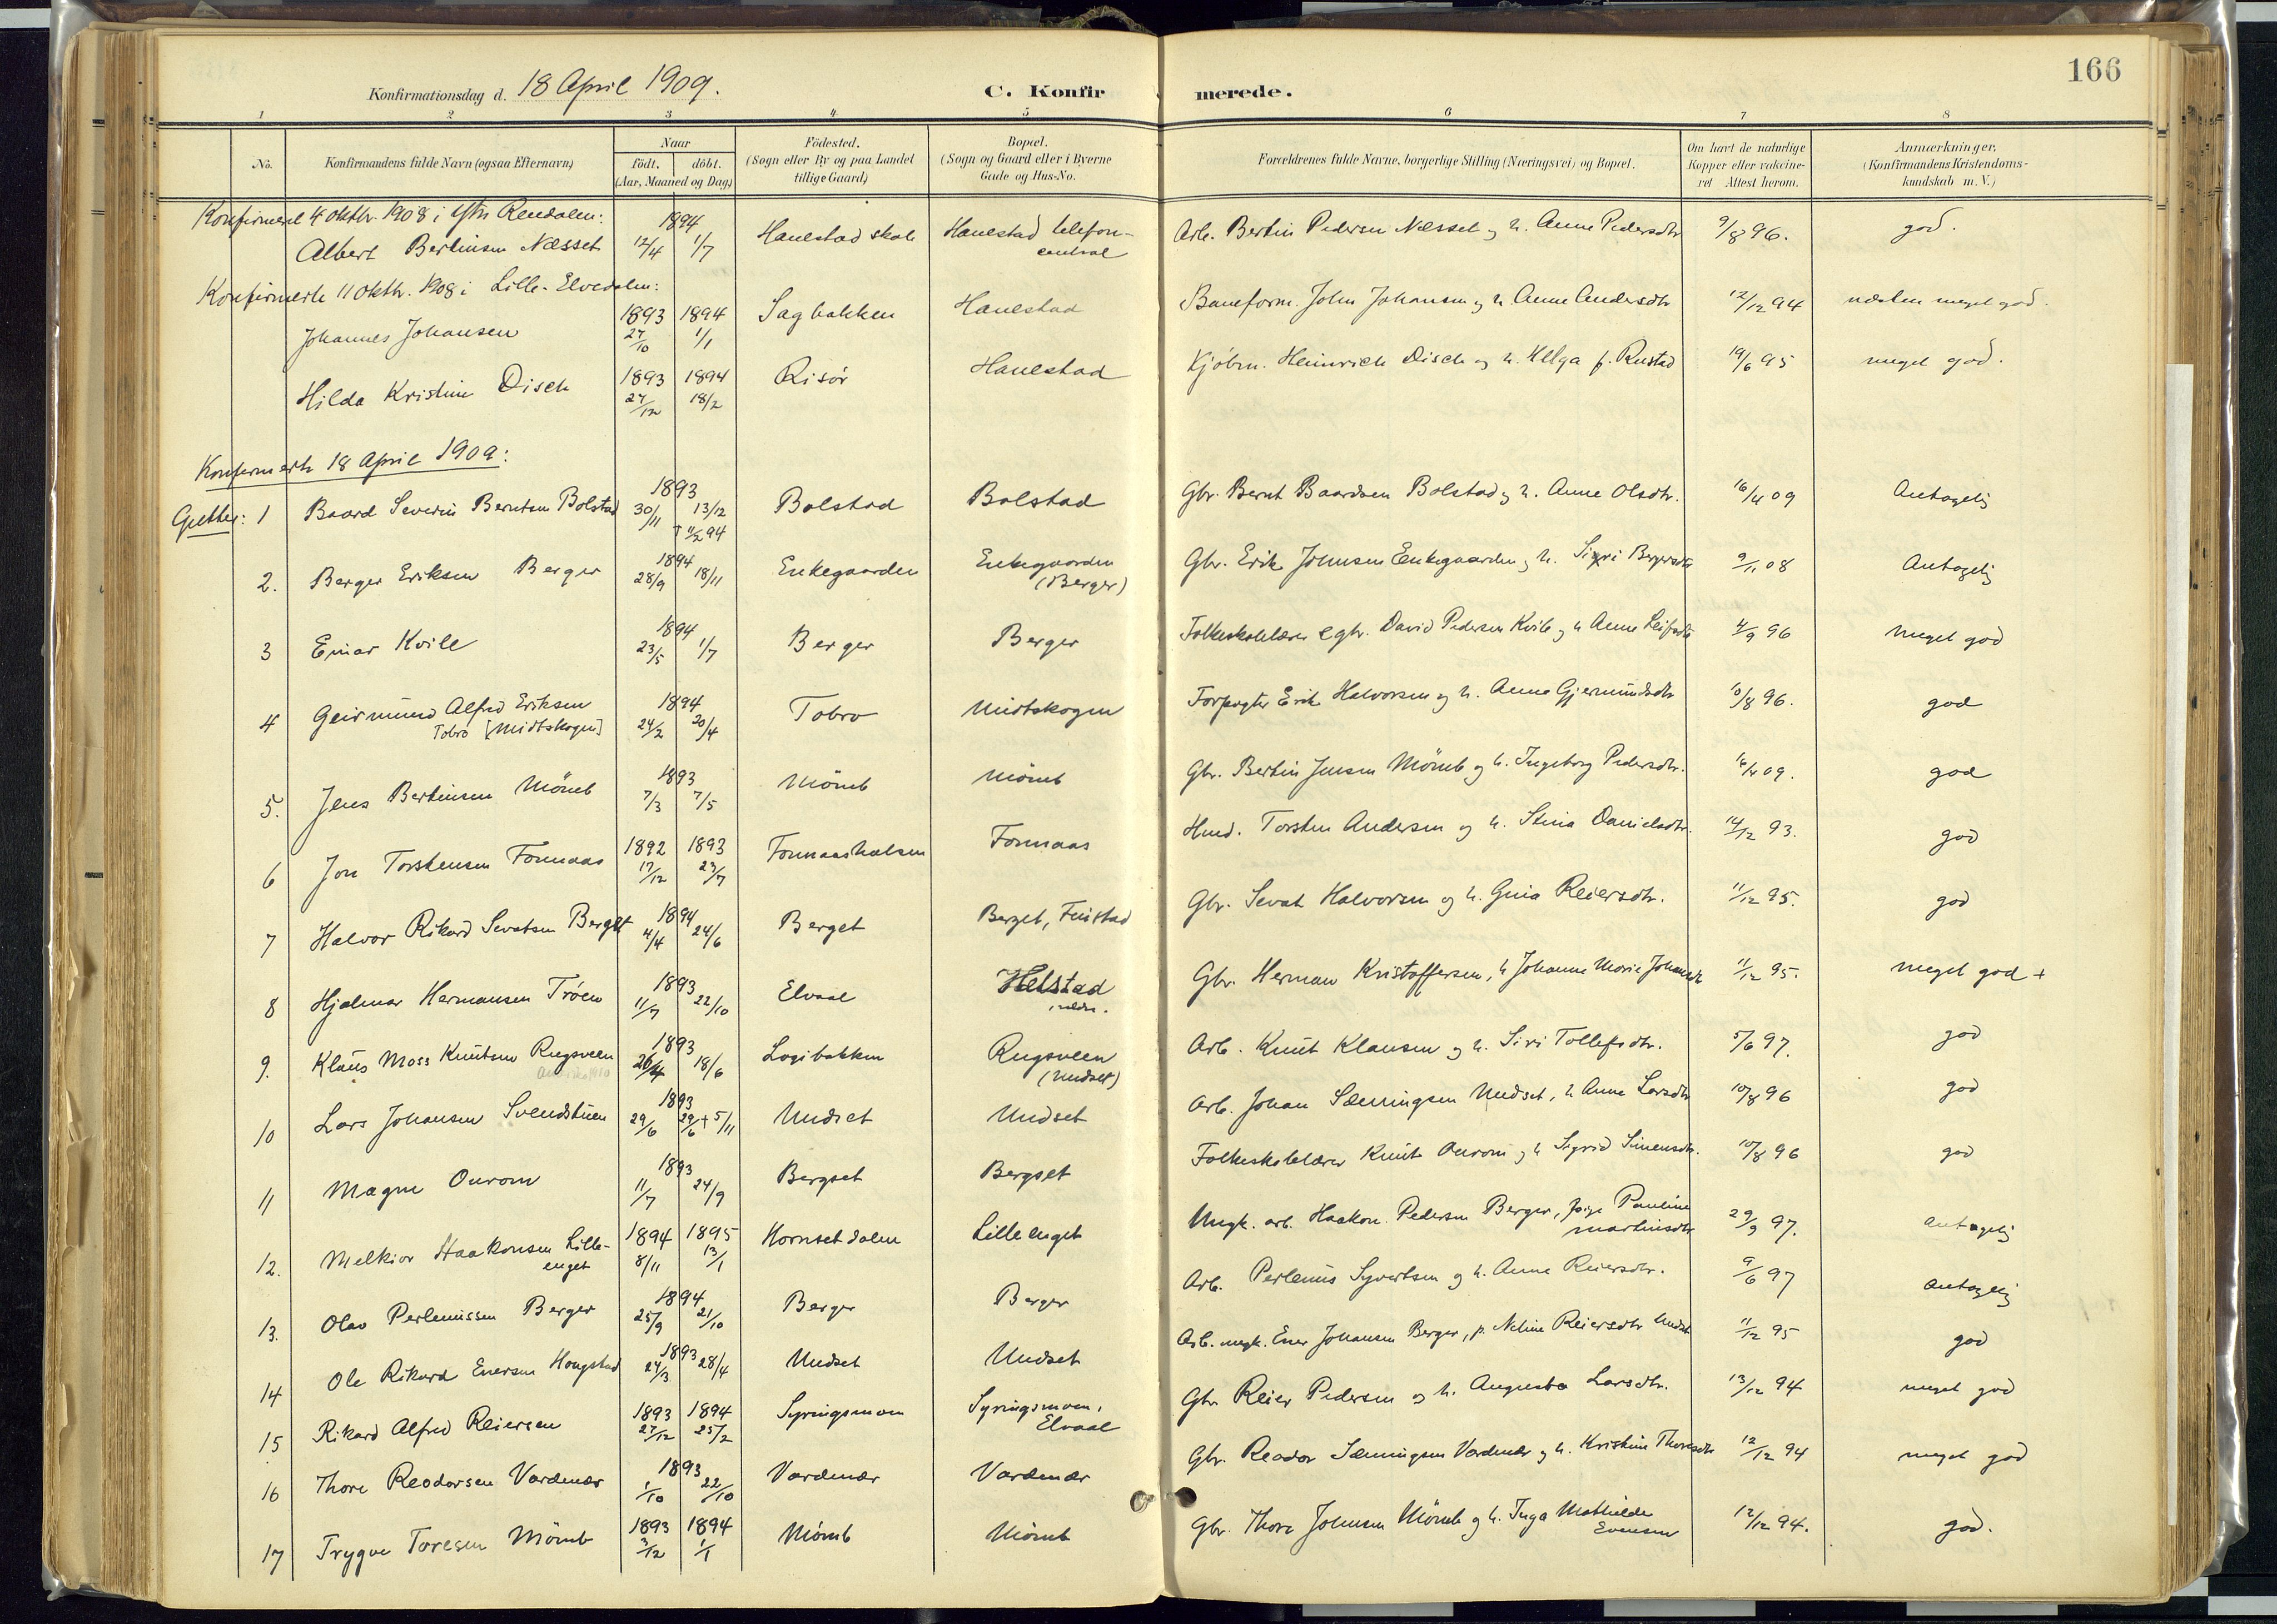 166
Konfirmationsdag d. 18 April 1909.
C. Konfirmerede.
1 2 3 4 5 6 7 8
No.
Konfirmandens fulde Navn (ogsaa Efternavn)
Naar
födt. döbt.
(Aar, Maaned og Dag)
Födested.
(Sogn eller By og paa Landet
tillige Gaard)
Bopæl.
(Sogn og Gaard eller i Byerne
Gade og Hus-No.
Forældrenes fulde Navne, borgerlige Stilling (Næringsvei) og Bopæl.
Om havt de naturlige
Kopper eller vaccine-
ret Attest herom.
Anmærkninger.
(Konfirmandens Kristendoms-
kundskab m. V.)
Konfirmeret 4 oktbr. 1908 i Ytre Rendalen:
Albert Bertinsen Næsset 1894 12/4 1/7 Hanestad skole Hanestad telefon-central Arb. Bertin Pedersen Næsset og h. Anne Pedersdtr 9/8 96. god.
Konfirmerte 11 oktbr. 1908 i Lille-Elvedalen:
Johannes Johansen 1893 27/10 1894 1/1 Sagbakken Hanestad Baneform. John Johansen og h. Anne Andersdtr 12/12 94 næsten meget god.
Hilda Kristine Disch 1893 27/12 1894 18/2 Risör Hanestad Kjöbm. Heinrich Disch og h. Helga f. Rustad 19/6 95 meget god.
Konfirmerte 18 April 1909:
Gutter: 1 Baard Severin Berntsen Bolstad 1893 30/11 13/12 † 11/2 94 Bolstad Bolstad Gbr. Bernt Baardsen Bolstad og h. Anne Olsdtr. 16/4 09 Antagelig
2. Berger Eriksen Berger 1894 28/9 18/11 Enkegaarden Enkegaarden (Berger) Gbr. Erik Johnsen Enkegaarden og h. Sigri Bergersdtr 9/1 08 Antagelig
3 Einar Kvile 1894 23/5 1/7 Berger Berger Folkeskolelærer & gbr. David Pedersen Kvile og h Anne Leifsdtr 4/9 96 meget god
4 Geirmund Alfred Eriksen Tobro [Midtskogen] 1894 24/2 20/4 Tobro Midtskogen Forpagter Erik Halvorsen og h. Anne Gjermundsdtr 10/8 96. god
5. Jens Bertinsen Mömb 1893 7/3 7/5 Mömb Mömb Gbr. Bertin Jensen Mömb og h. Ingeborg Pedersdtr. 16/4 09. god
6 Jon Torstensen Fonnaas 1892 17/12 1893 23/7 Fonnaasholsen Fonnaas Hmd. Torsten Andersen og h. Stina Danielsdtr. 14/12 93. god
7 Halvor Rikard Sevatsen Berget 1894 4/4 24/6 Berget Berget, Finstad Gbr. Sevat Halvorsen og h. Gina Reiersdtr. 11/12 95. god
8 Hjalmar Hermansen Tröen 1893 11/7 22/10 Elvaal Helstad Gbr. Herman Kristoffersen, h Johanne Marie Johansdtr 11/12 95. meget god +
9. Klaus Moss Knutsen Rugsveen 1893 26/4 18/6 Logibakken Rugsveen (Undset) Arb. Knut Klausen og h. Siri Tollefsdtr. 5/6 97. god
10 Lars Johansen Svendstuen 1893 29/6 29/6 + 5/11 Undset Undset Arb. Johan Sæmingsen Undset, h Anne Larsdtr 10/8 96 god
11 Magne Ourom 1893 11/7 24/9 Bergset Bergset Folkeskolelærer Knut Ourom og h Sigrid Simensdtr. 10/8 96 god
12. Melkior Haakonsen Lille-enget 1894 8/11 1895 13/1 Hornsetdalen Lilleenget Ungk. arb. Haakon Pedersen Berger, pige Pauline Martinsdtr 29/9 97. antagelig
13. Olav Perlenussen Berger 1894 25/9 21/10 Berger Berger Arb. Perlenus Syvertsen og h. Anne Reiersdtr. 9/6 97 antagelig
14 Ole Rikard Enersen Hougstad 1893 24/3 28/4 Undset Undset Arb. ungk. Ener Johansen Berger, p. Neline Reiersdtr Undset 11/12 95 god
15 Rikard Alfred Reiersen 1893 27/12 1894 25/2 Syringsmoen Syringsmoen, Elvaal Gbr Reier Pedersen og h. Augusta Larsdtr. 13/12 94 meget god
16 Thore Reodorsen Vardenær 1893 1/10 22/10 Vardenær Vardenær Gbr. Reodor Sæmingsen Vardenær og h. Kristine Thoresdtr 12/12 94 meget god
17 Trygve Toresen Mömb 1893 3/12 1894 1/1 Mömb Mömb Gbr. Thore Johnsen Mömb og h. Inga Mathilde Evensen 12/12 94. god.